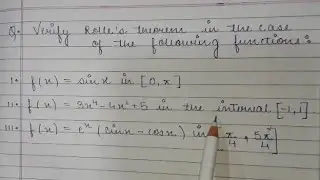 Q. Verify Rolle's theorem in the case
of the following functions:
I. f(x) = sinx in [0, x]
II. f(x) = 3x⁴-4x²+5 in the interval [-1, 1]
III. f(x) = eˣ (sinx - cosx) in [π/4, 5π/4]